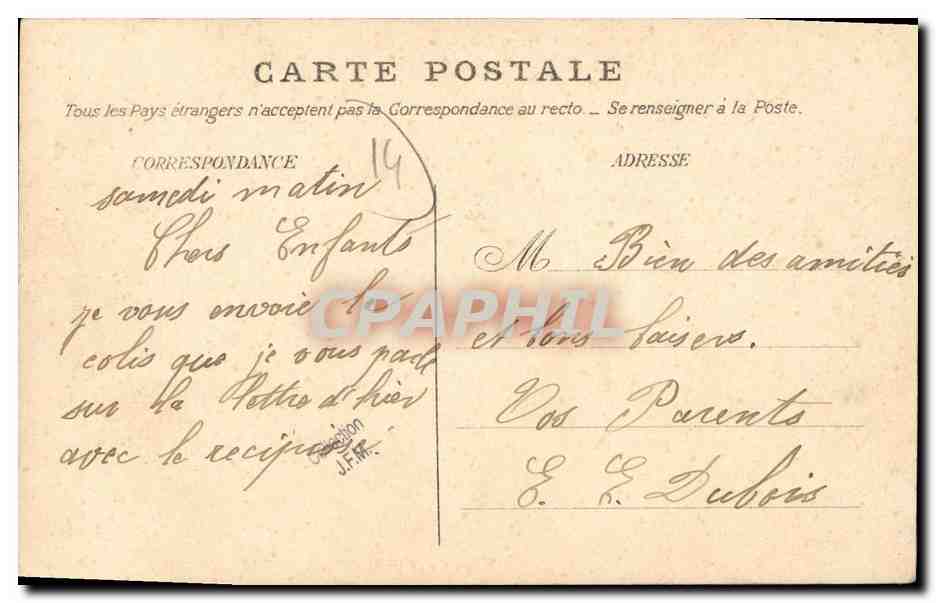 CARTE POSTALE
Tous les Pays étrangers n'acceptent pas la Correspondance au recto. _ Se renseigner à la Poste.
CORRESPONDANCE
14
samedi matin
Chers Enfants
je vous envoie le
colis que je vous parle
sur la lettre d'hier
avec le
Collection
J.F.M.
ADRESSE
M Bien des amitiés
et bons baisers.
Vos Parents
E. E. Dubois
CPAPHIL